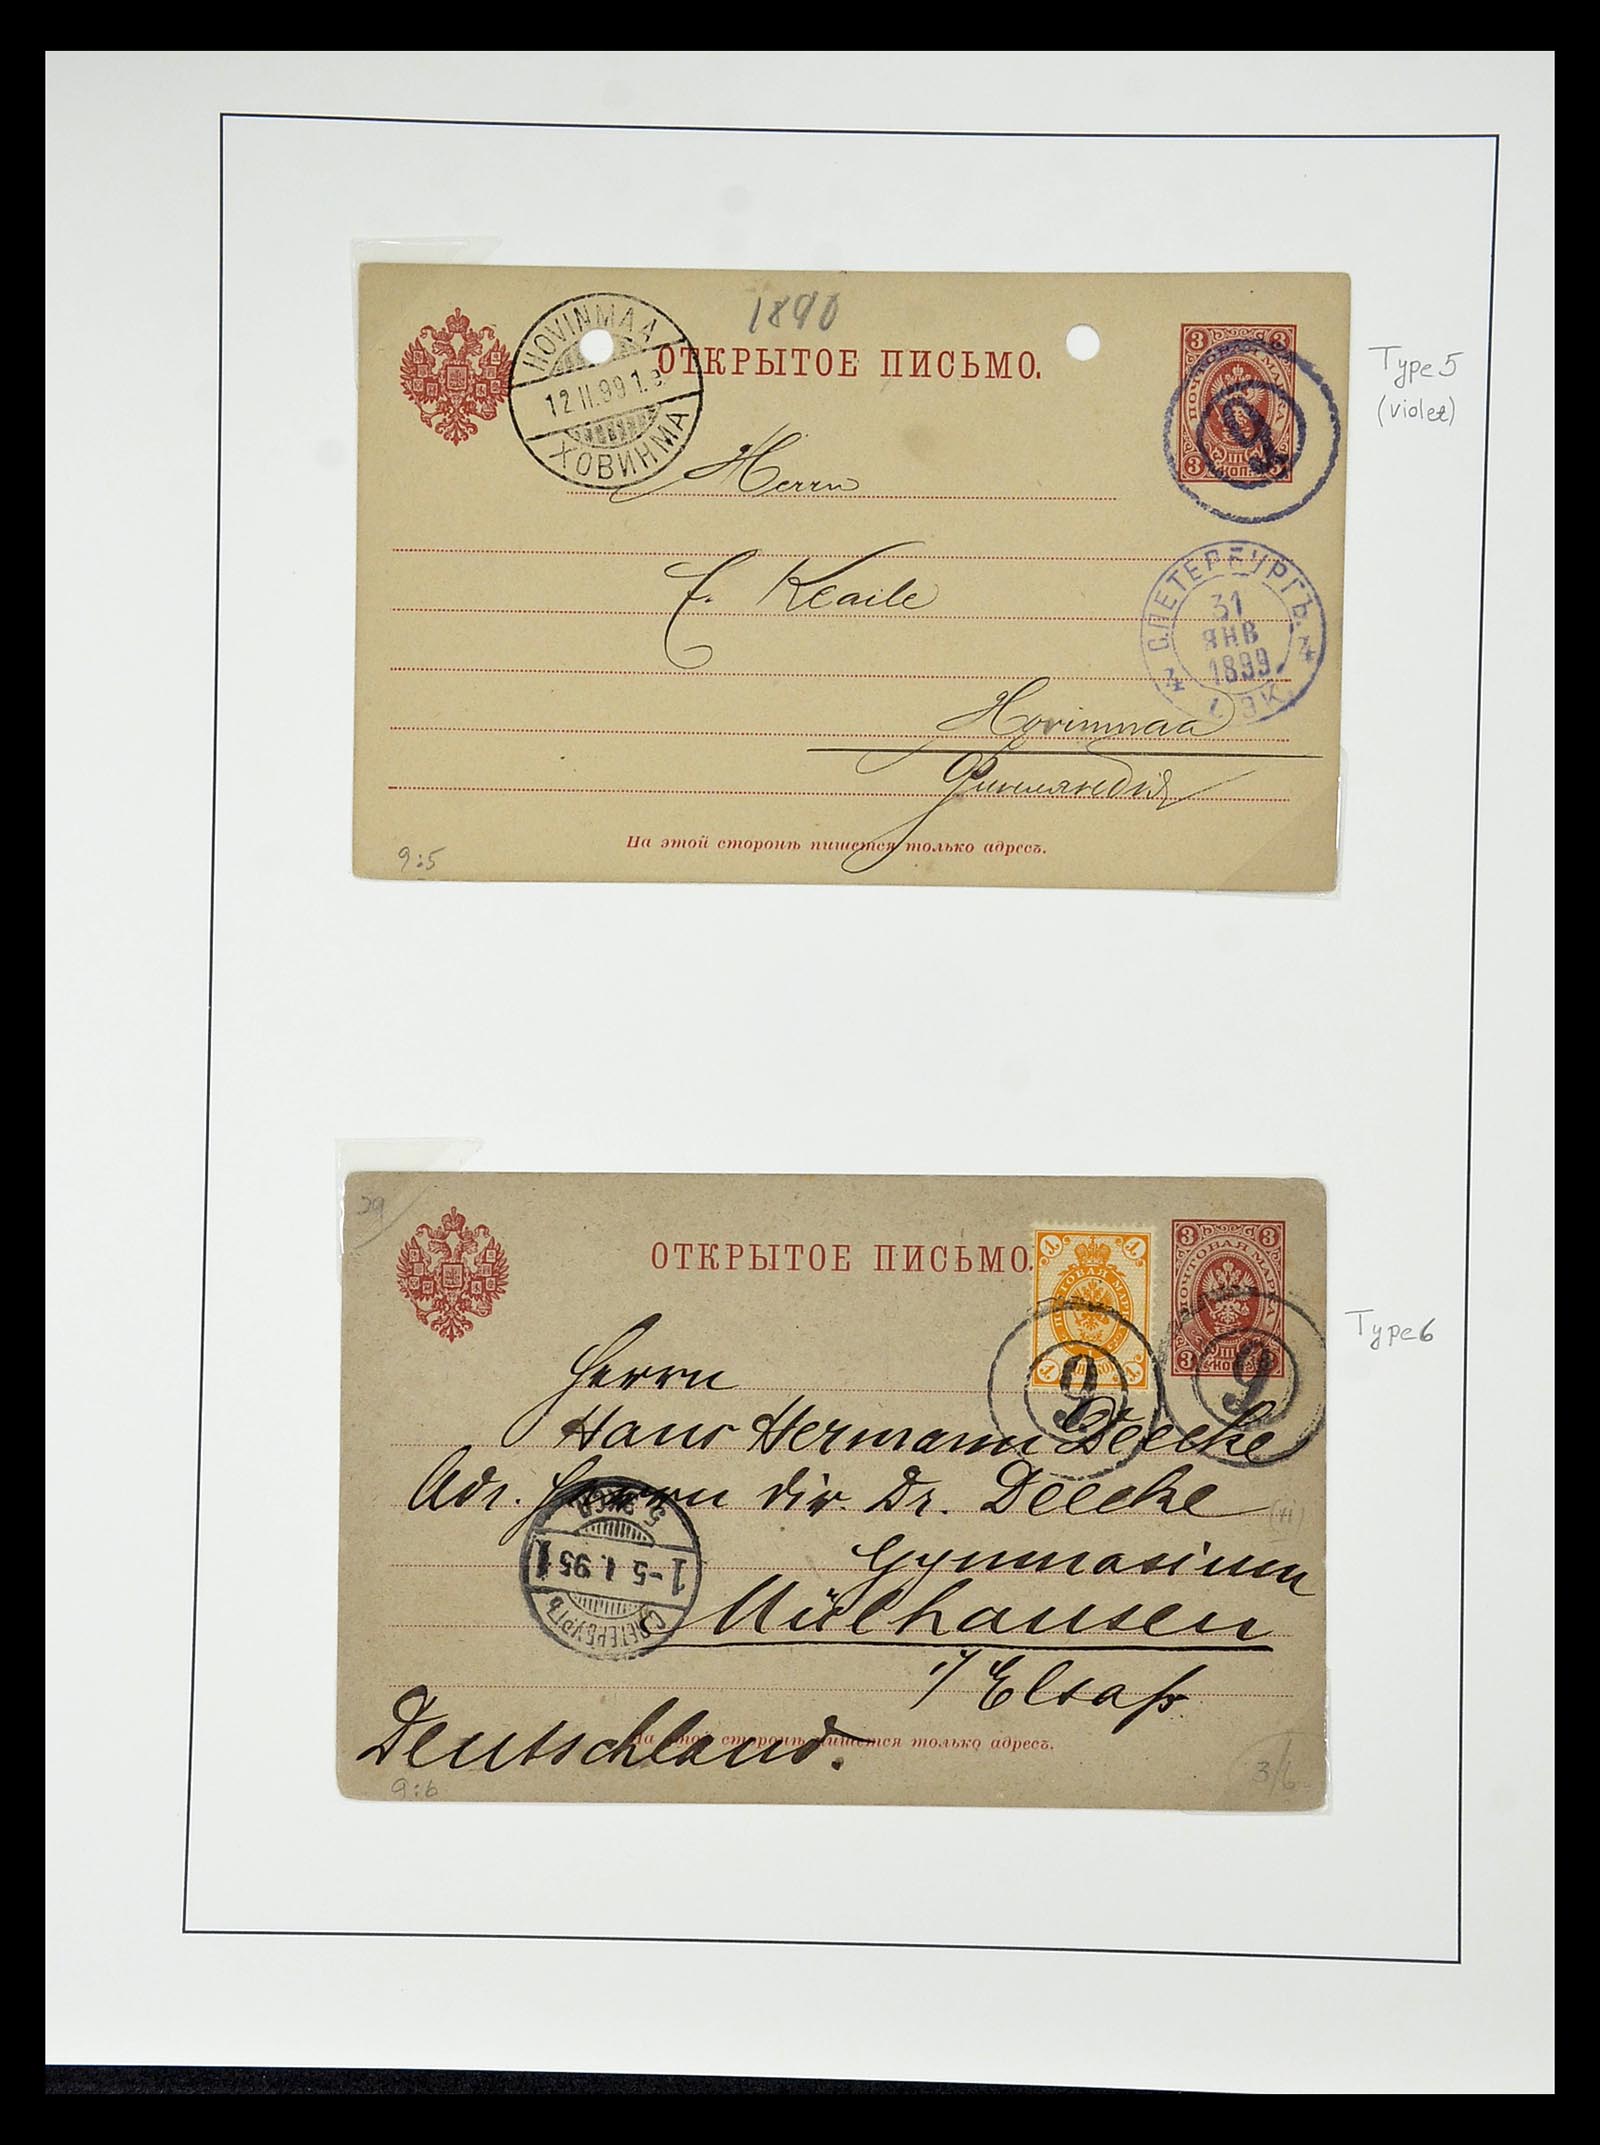 1890
HOVINMAA
12 II.99 1.e
ХОВИНМА
ОТКРЫТОЕ ПИСЬМО.
3 3
ПОЧТОВАЯ МАРКА
3 3
9
Type 5
(violet)
Herrn
С.ПЕТЕРБУРГЪ.
31
ЯНВ
1899
4 4
E. Kcaile
Hovinmaa
Финляндія
На этой сторонѣ пишется только адресъ.
9:5
29
ОТКРЫТОЕ ПИСЬМО.
1 1
1 1
3 3
ПОЧТОВАЯ МАРКА
3
9
9
Type 6
Herrn
Hans Hermann Deecke
Adr. Herrn dir. Dr. Deecke
(41)
Gymnasium
5 ЭКСП
1-5 1.95 1
С.ПЕТЕРБУРГЪ
Mülhausen
i/Elsaß
Deutschland.
На этой сторонѣ пишется только адресъ.
9:6
3/6